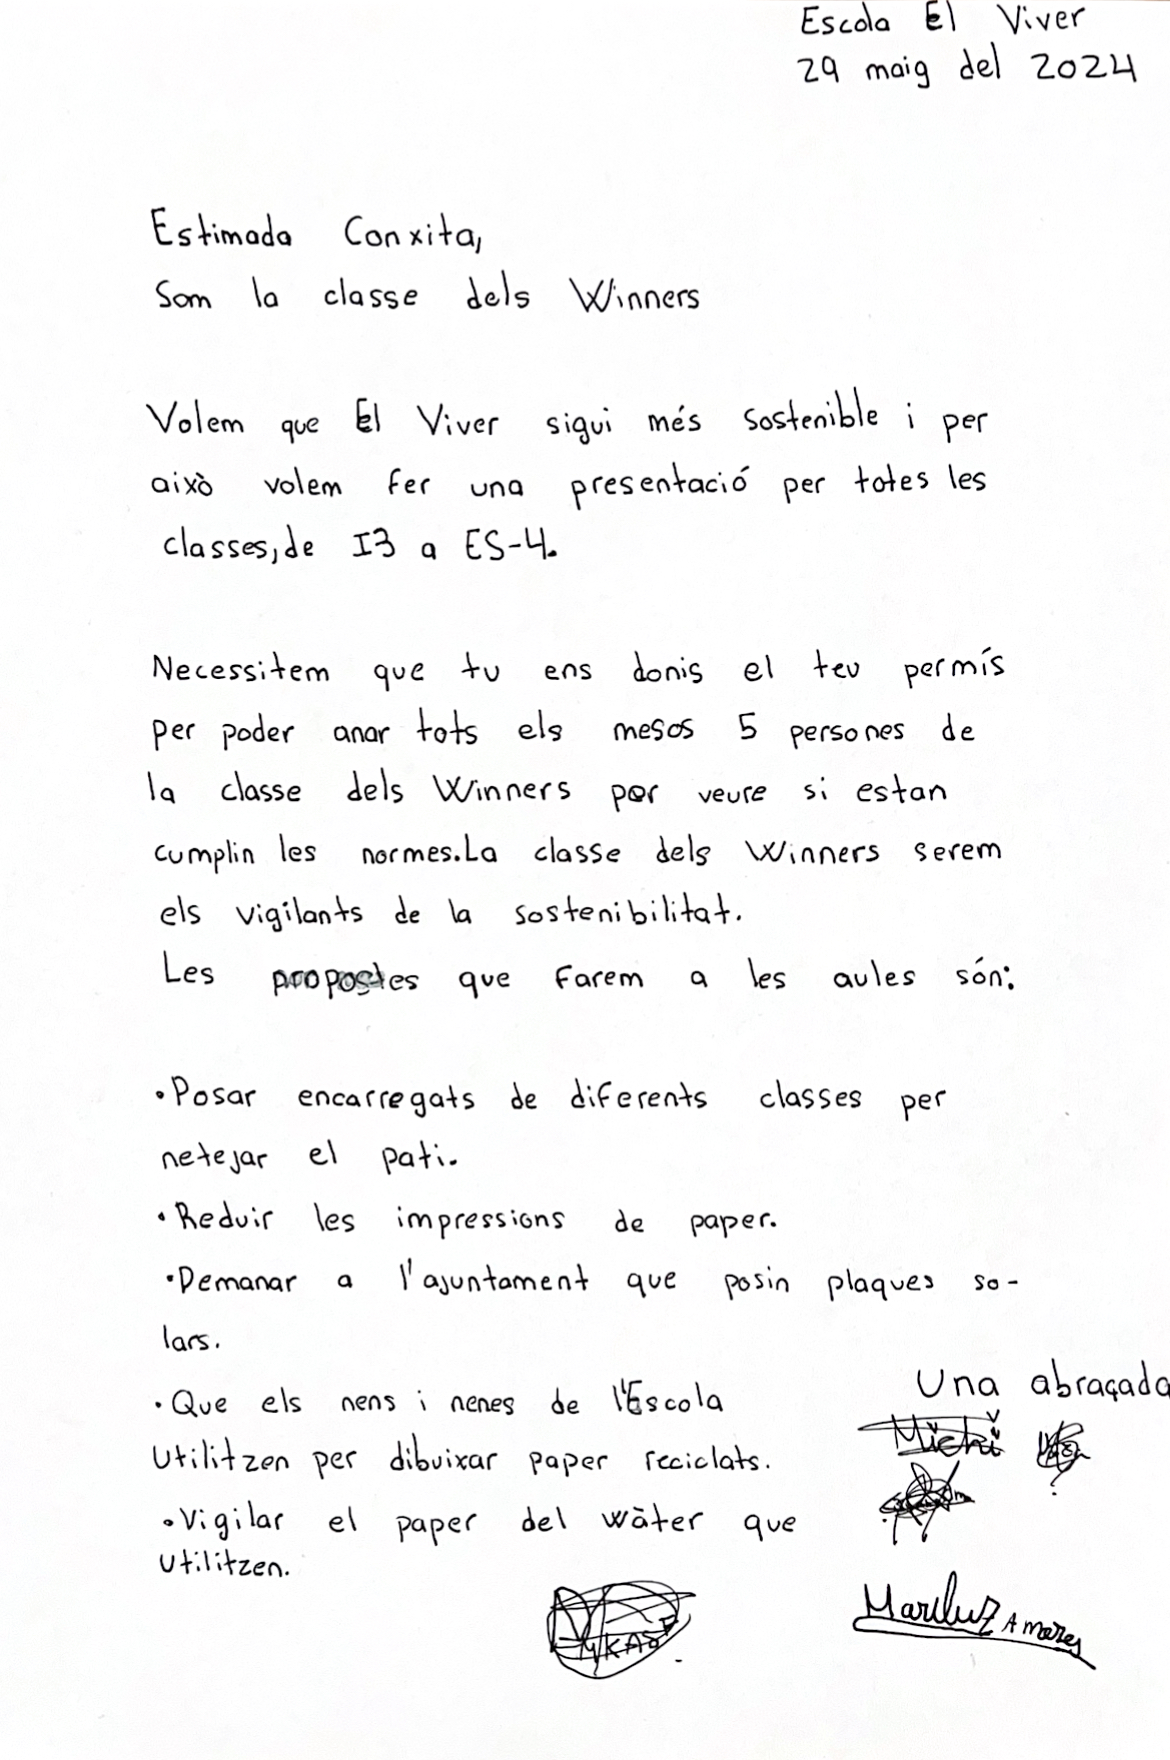 Escola El Viver
29 maig del 2024
Estimada Conxita,
Som la classe dels Winners
Volem que El Viver sigui més sostenible i per
això volem fer una presentació per totes les
classes, de I3 a ES-4.
Necessitem que tu ens donis el teu permís
per poder anar tots els mesos 5 persones de
la classe dels Winners per veure si estan
cumplin les normes. La classe dels Winners serem
els vigilants de la sostenibilitat.
Les propostes que farem a les aules són:
• Posar encarregats de diferents classes per
netejar el pati.
• Reduir les impressions de paper.
• Demanar a l'ajuntament que posin plaques so-
lars.
• Que els nens i nenes de l'Escola
utilitzen per dibuixar paper reciclats.
• Vigilar el paper del wàter que
utilitzen.
Una abraçada
Michi
Mariluz Amores